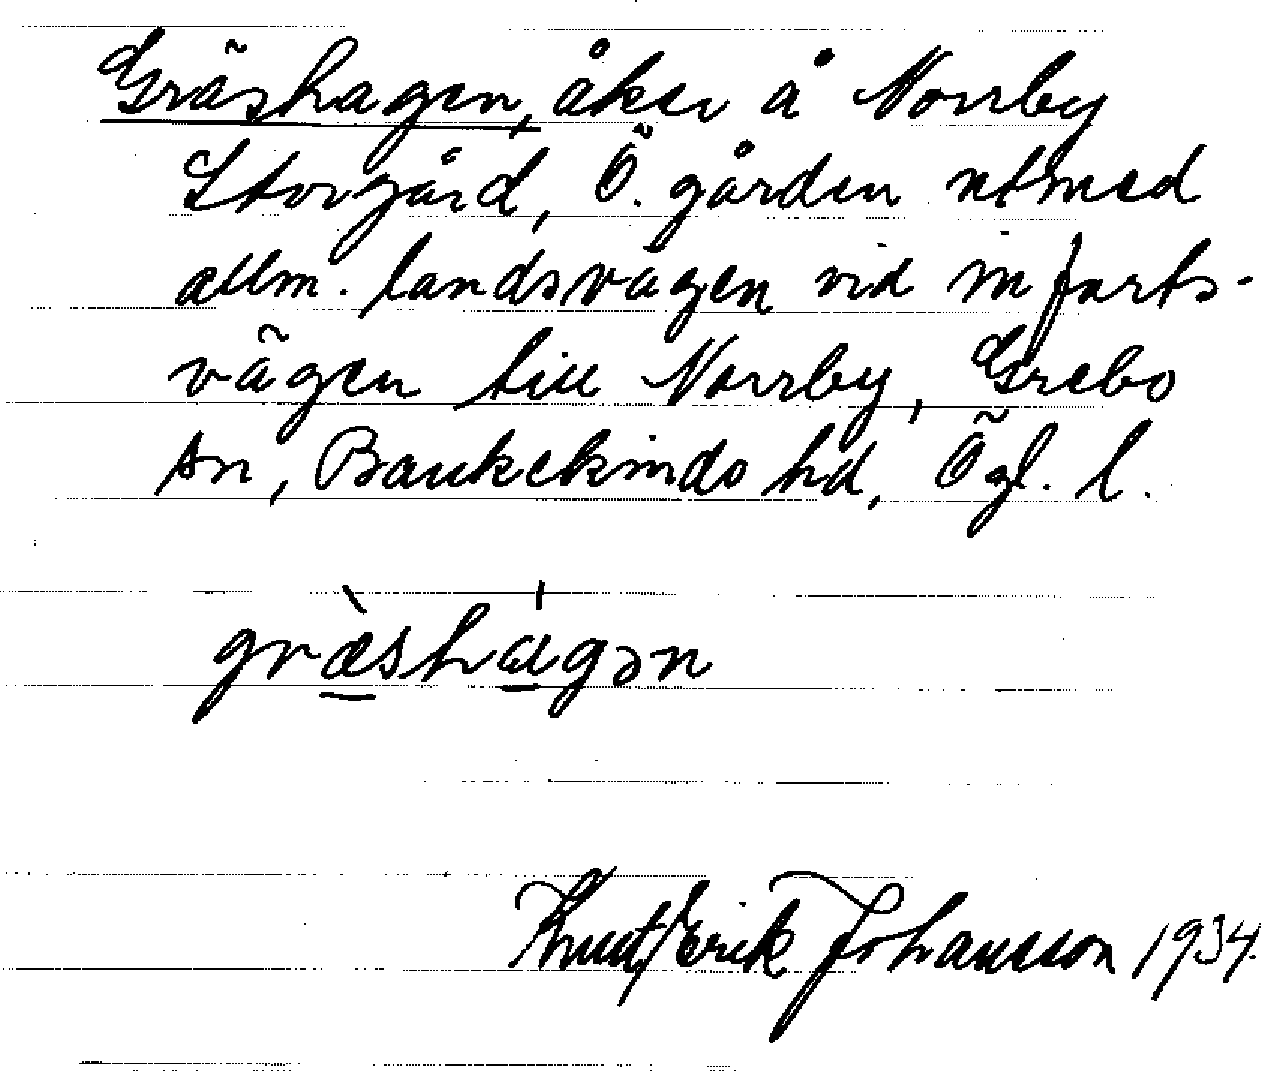 Gräshagen, åker å Norrby
Storgård, Ö. gården utmed
allm. landsvägen vid infarts-
vägen till Norrby, Grebo
sn, Bankekinds hd, Ögl. l.
græ̀shágən
Knut Erik Johansson 1934.